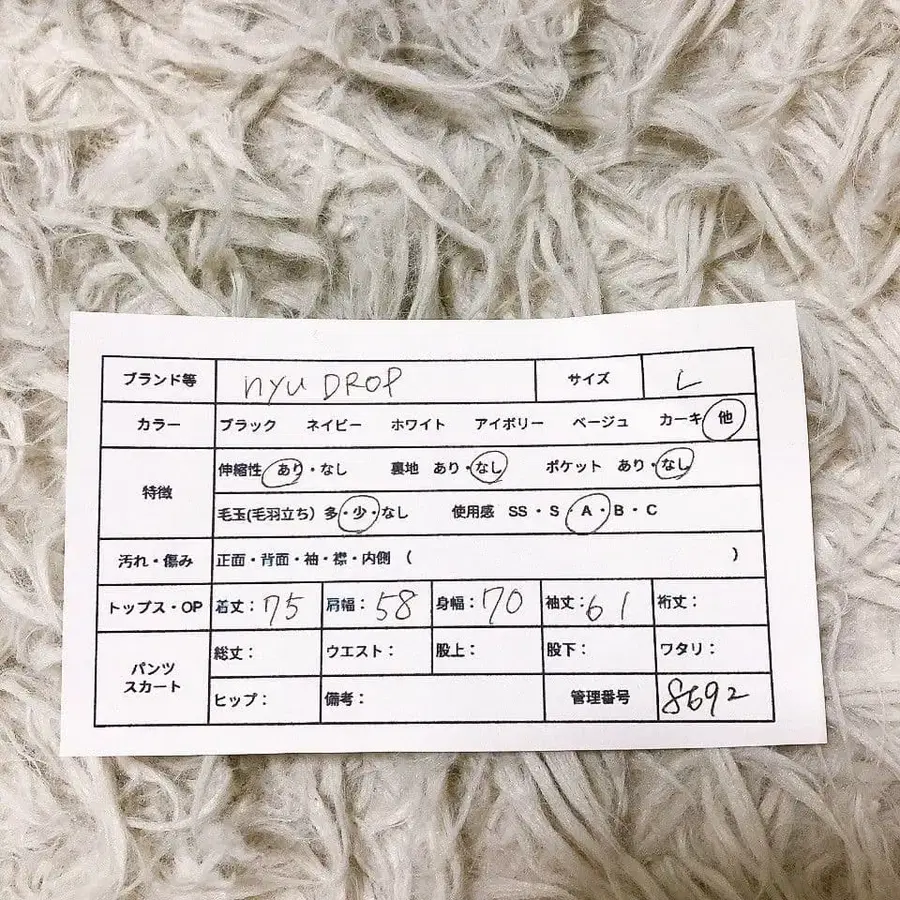 ブランド等 nyu DROP サイズ L
カラー ブラック ネイビー ホワイト アイボリー ベージュ カーキ 他
特徴
伸縮性 あり・なし 裏地 あり・なし ポケット あり・なし
毛玉(毛羽立ち) 多・少・なし 使用感 SS・S・A・B・C
汚れ・傷み 正面・背面・袖・襟・内側 ( )
トップス・OP 着丈：75 肩幅：58 身幅：70 袖丈：61 裄丈：
パンツ
スカート
総丈： ウエスト： 股上： 股下： ワタリ：
ヒップ： 備考： 管理番号 8692